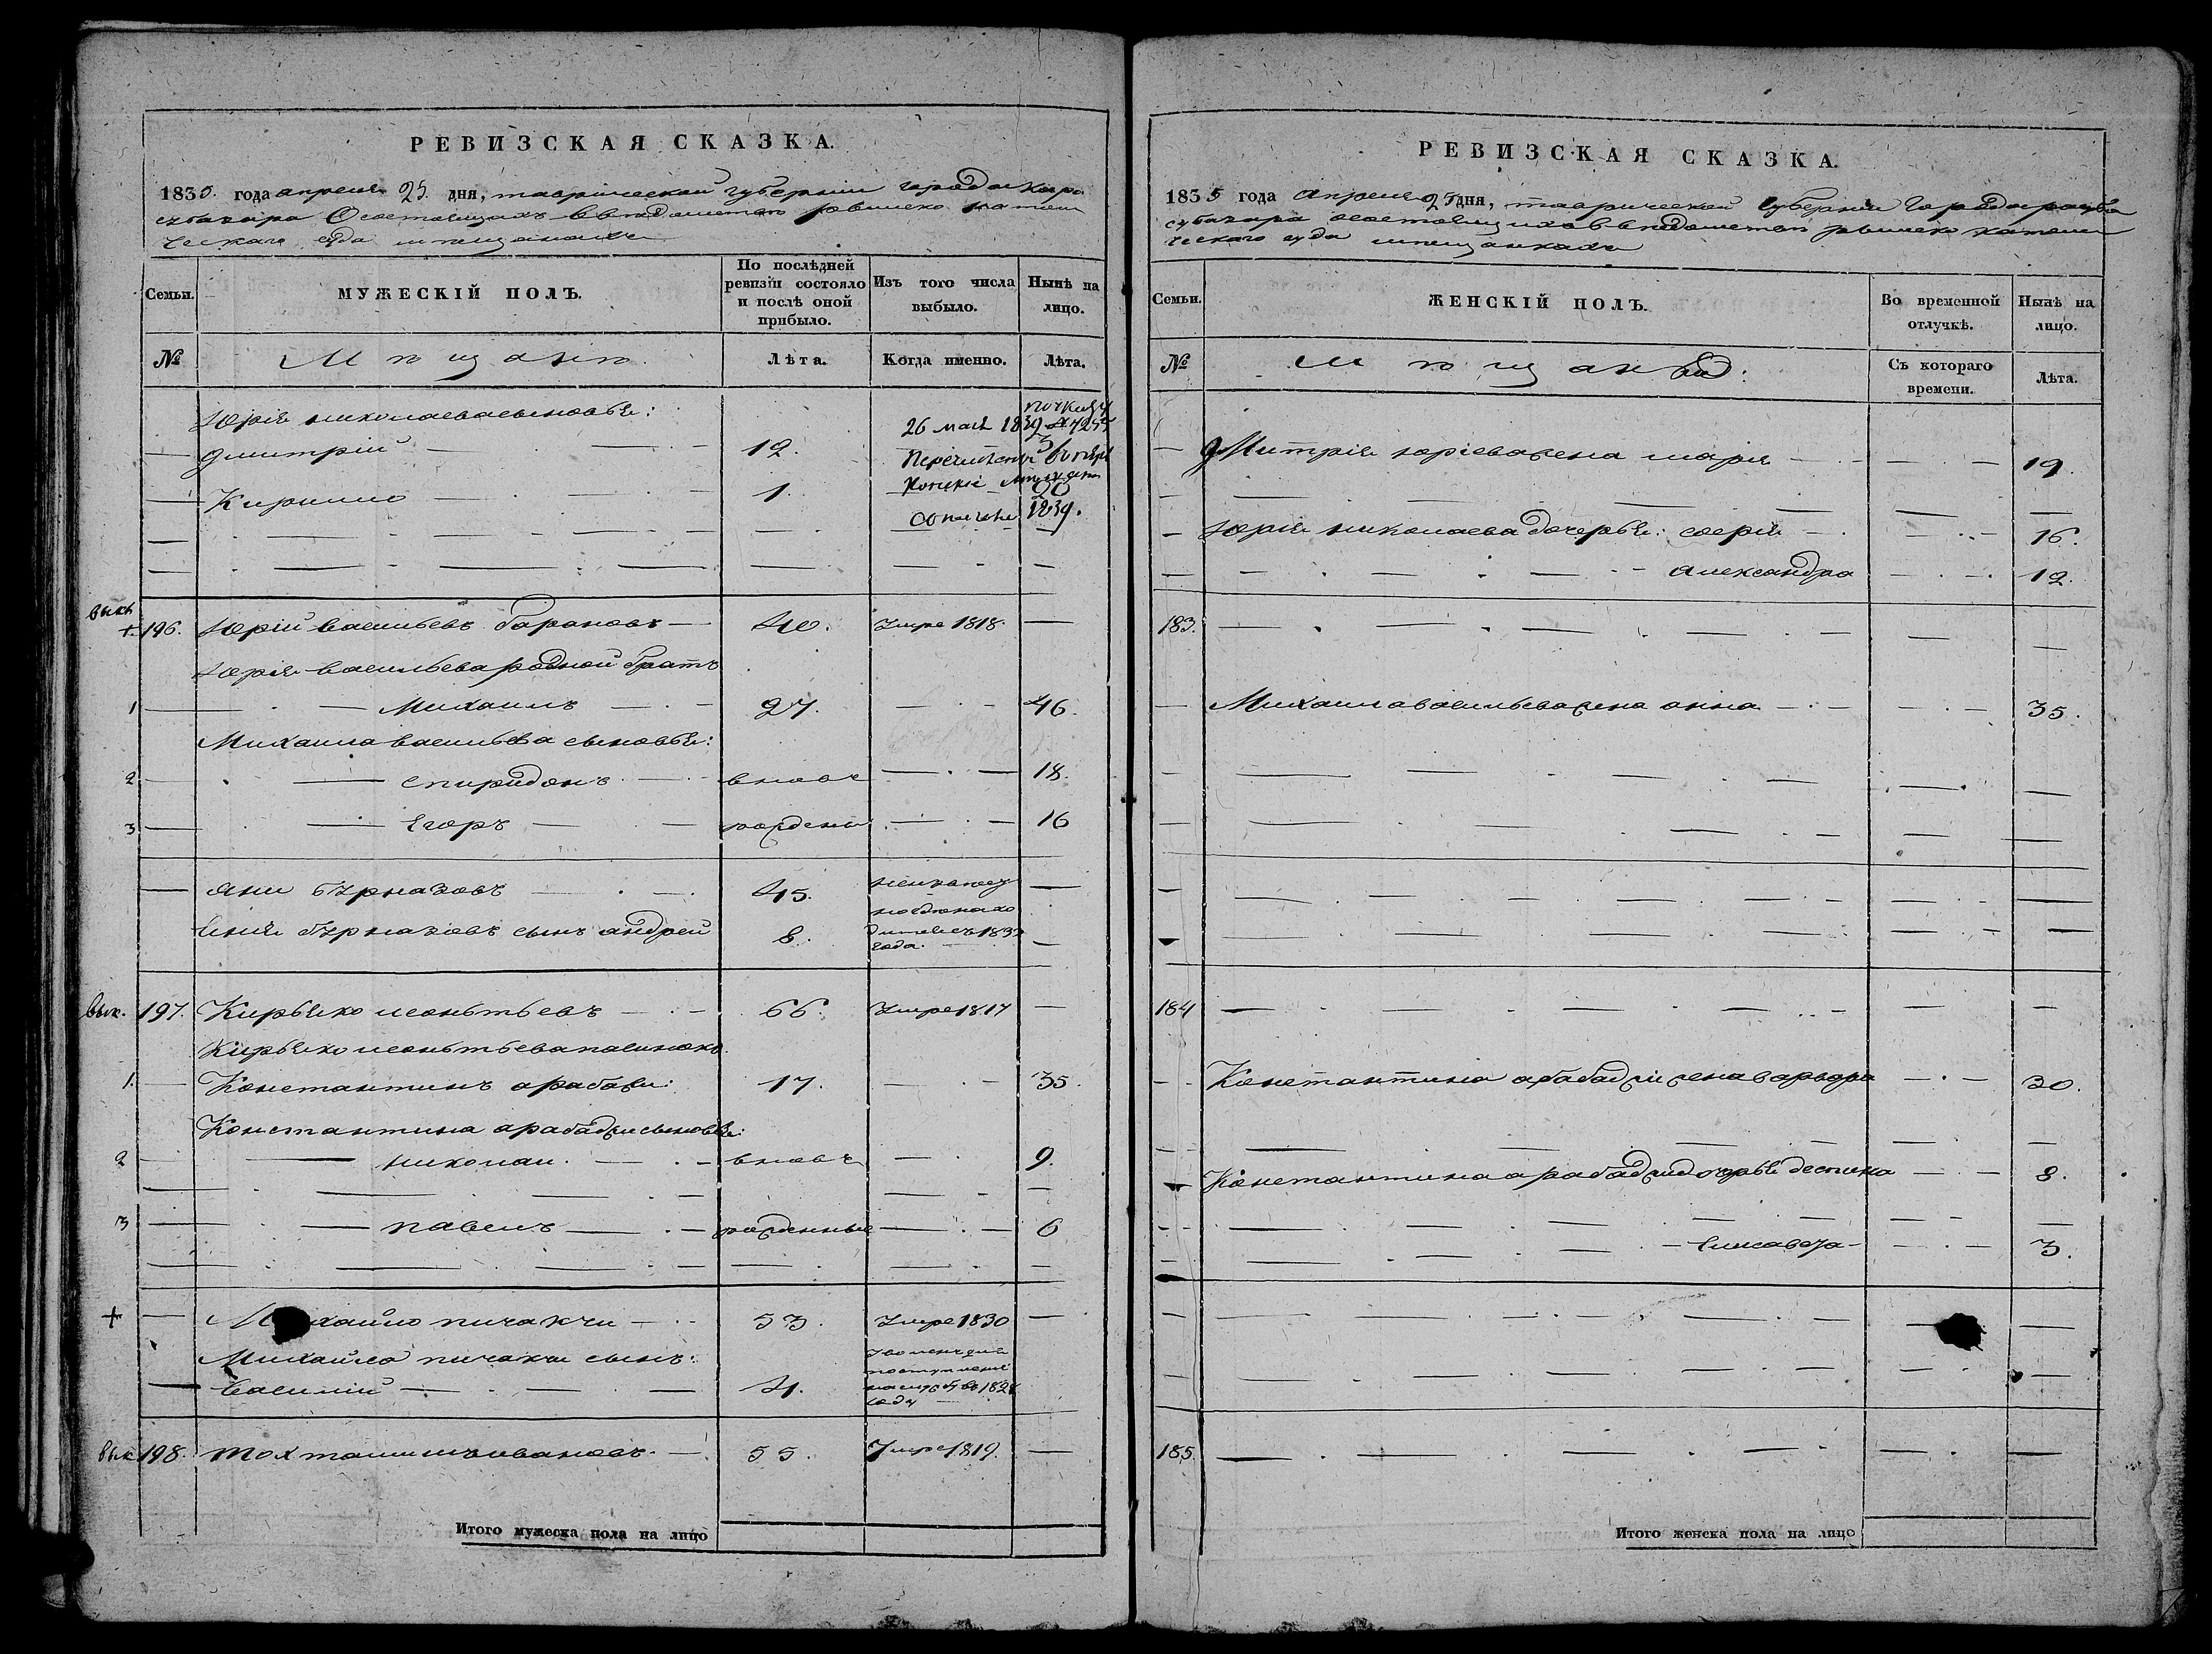 РЕВИЗСКАЯ СКАЗКА.
1835. года апреля 25. дня, таврической губернии города Кара
субазара О состоящихъ в ведомстве римско католи
ческаго суда мещанахъ
Семьи.
МУЖЕСКІЙ ПОЛЪ.
По послѣдней ревизіи состояло и послѣ оной прибыло.
Изъ того числа выбыло.
Нынѣ на лицо.
№
Мѣщанѣ.
Лѣта.
Когда именно.
Лѣта.
Юрія николаева сыновья:
— дмитрій — 12.
26 1839
— Кирило — 1.
1839.
вык
+ 196. Юрій васильевъ барановъ — 40. Умре 1818. —
Юрія васильева родной братъ
1 — Михаилъ — 27. — 46.
Михаила васильева сыновья:
2 — спиридонъ — вновь — 18.
3 — Егоръ — рождены — 16
— Яни бурназовъ — 45. —
Яния бурназовъ сынъ андрей 8. 1832 года. —
вык. 197. Кирьяко леонтьевъ — 66. Умре 1817 —
Кирьяко леонтьева пасинокъ
1. — Константинъ арабаджи: 17. — 35.
Константина арабаджи сыновья:
2 — николай. — вновь — 9.
3 — павелъ — рожденные — 6
+ — Михайло пичакчи — 53. Умре 1830 —
Михайла пичакчи сынъ:
— Василий — 4. 1828 году
вык 198. тохташишъ ивановъ — 55. Умре 1819. —
Итого мужеска пола на лицо
РЕВИЗСКАЯ СКАЗКА.
1835 года апреля 25 дня, таврической губернии города карасуба
зара о состоящихъ в ведомстве римско католи
ческаго суда мещанкахъ
Семьи.
ЖЕНСКІЙ ПОЛЪ.
Во временной отлучкѣ.
Нынѣ на лицо.
№
Съ котораго времени.
Лѣта.
— дМитрія юріева жена марія — 19.
— Юрія николаева дочерья: софія — 16.
— александра — 12.
183. —
— Михаила васильева жена анна — 35.
184 —
— Константина арабаджи жена варвара — 30.
— Константина арабаджи дочерья деспина — 8.
— Елисавета — 3.
185. —
Итого женска пола на лицо